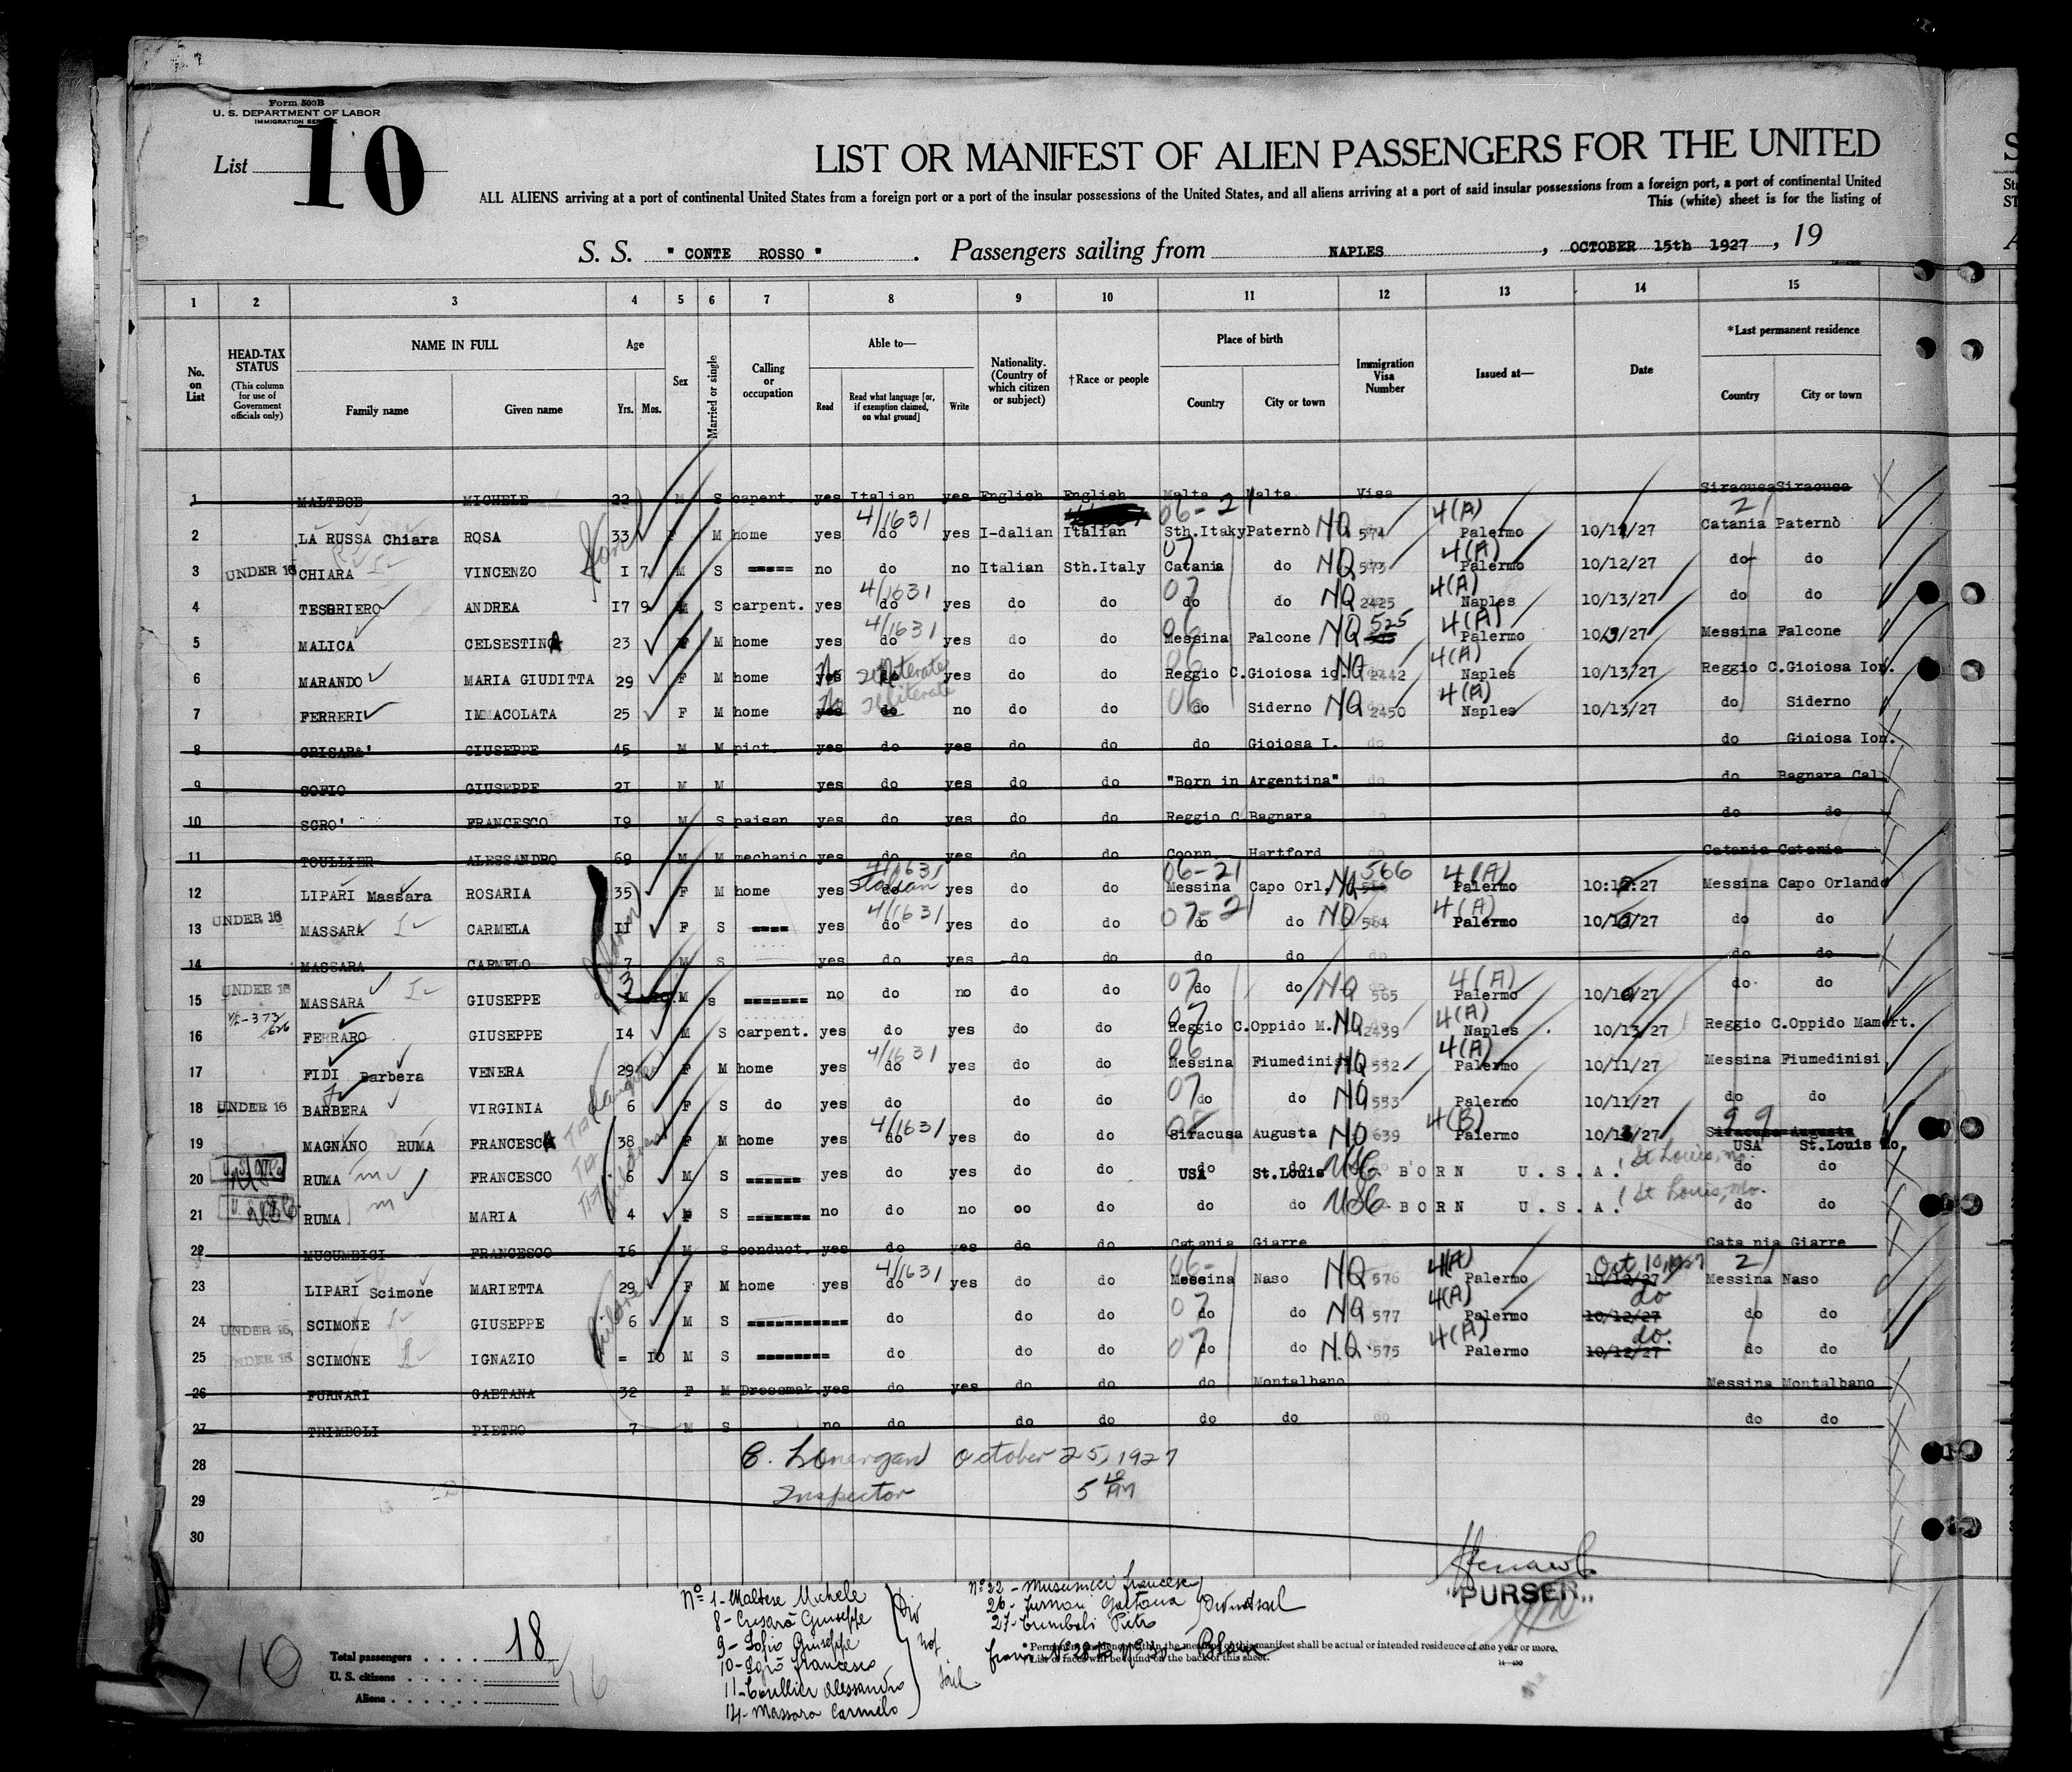 Form 500B
U. S. DEPARTMENT OF LABOR
IMMIGRATION SERVICE
List 10
LIST OR MANIFEST OF ALIEN PASSENGERS FOR THE UNITED
ALL ALIENS arriving at a port of continental United States from a foreign port or a port of the insular possessions of the United States, and all aliens arriving at a port of said insular possessions from a foreign port, a port of continental United
This (white) sheet is for the listing of
S. S. " CONTE ROSSO " . Passengers sailing from NAPLES , OCTOBER 15th 1927 , 19
1 2 3 4 5 6 7 8 9 10 11 12 13 14 15
No. on List
HEAD-TAX STATUS (This column for use of Government officials only)
NAME IN FULL Family name Given name
Age Yrs. Mos.
Sex
Married or single
Calling or occupation
Able to— Read Read what language [or, if exemption claimed, on what ground] Write
Nationality. (Country of which citizen or subject)
†Race or people
Place of birth Country City or town
Immigration Visa Number
Issued at—
Date
*Last permanent residence Country City or town
1 MALTESE MICHELE 22 M S capent. yes Italian yes English English Malta Malta Visa Siracusa Siracusa
2 LA RUSSA Chiara ROSA 33 F M home yes 4/1631 do yes I-dalian Italian 06-21 Sth.Itaky Paternò NQ 574 4(A) Palermo 10/12/27 21 Catania Paternò
3 UNDER 16 CHIARA VINCENZO I 7 M S ----- no do no Italian Sth.Italy 07 Catania do NQ 573 4(A) Palermo 10/12/27 do do
4 TESRRIERO ANDREA I7 9 M S carpent. yes 4/1631 do yes do do 07 do do NQ 2425 4(A) Naples 10/13/27 do do
5 MALICA CELSESTINA 23 F M home yes 4/1631 do yes do do 06 Messina Falcone NQ 525 4(A) Palermo 10/9/27 Messina Falcone
6 MARANDO MARIA GIUDITTA 29 F M home yes No do Illiterate yes do do 06 Reggio C. Gioiosa io. NQ 2442 4(A) Naples 10/13/27 Reggio C. Gioiosa Ion.
7 FERRERI IMMACOLATA 25 F M home yes No do Illiterate no do do 06 do Siderno NQ 2450 4(A) Naples 10/13/27 do Siderno
8 CRISARA' GIUSEPPE 45 M M pict. yes do yes do do do Gioiosa I. do do Gioiosa Ion.
9 SOFIO GIUSEPPE 2I M M yes do yes do do "Born in Argentina" do do Bagnara Cal
10 SGRO' FRANCESCO I9 M S paisan yes do yes do do Reggio C Bagnara do do
11 TOULLIER ALESSANDRO 69 M M mechanic yes do yes do do Coonn. Hartford do Catania Catania
12 LIPARI Massara ROSARIA 35 F M home yes 4/1631 Italian yes do do 06-21 Messina Capo Orl. NQ 566 4(A) Palermo 10:12:27 Messina Capo Orlando
13 UNDER 16 MASSARA CARMELA II F S ---- yes 4/1631 do yes do do 07-21 do do NQ 564 4(A) Palermo 10/10/27 do do
14 MASSARA CARMELO 7 M S yes do yes do do do do do do do
15 UNDER 16 MASSARA GIUSEPPE 3 M s ------- no do no do do 07 do do NQ 565 4(A) Palermo 10/10/27 do do
16 V/L-373/626 FERRARO GIUSEPPE I4 M S carpent. yes do yes do do 07 Reggio C. Oppido M. NQ 2439 4(A) Naples 10/13/27 Reggio C. Oppido Mamert.
17 FIDI Barbera VENERA 29 F M home yes 4/1631 do yes do do 06 Messina Fiumedinisi NQ 552 4(A) Palermo 10/11/27 Messina Fiumedinisi
18 UNDER 16 BARBERA VIRGINIA daughter 6 F S do yes do do do 07 do do NQ 553 Palermo 10/11/27 do do
19 MAGNANO RUMA FRANCESCA 38 F M home yes 4/1631 do yes do do 06 Siracusa Augusta NQ 639 4(B) Palermo 10/13/27 99 Siracusa Augusta USA St.Louis Mo.
20 RUMA FRANCESCO 6 M S ------ yes do yes do do do USA do St.Louis USC BORN U.S.A. (St Louis, Mo. do do
21 RUMA MARIA 4 F S ------- no do no oo do do do USC BORN U.S.A. (St Louis, Mo. do do
22 MUSUMECI FRANCESCO I6 M S conduct. yes do yes do do Catania Giarre Cata nia Giarre
23 LIPARI Scimone MARIETTA 29 F M home yes 4/1631 do yes do do 06- Messina Naso NQ 576 4(A) Palermo 10/12/27 Oct 10, 1927 21 Messina Naso
24 UNDER 16, SCIMONE GIUSEPPE 6 M S ----------- do do do 07 do do NQ 577 4(A) Palermo 10/12/27 do do do
25 UNDER 16 SCIMONE IGNAZIO = I0 M S -------- do do do 07 do do N.Q. 575 4(A) Palermo 10/12/27 do. do do
26 FURNARI GAETANA 32 F M Dressmak. yes do yes do do do Montalbano Messina Montalbano
27 TRIMBOLI PIETRO 7 M S no do do do do do do do do
28 C. Lonergan October 25, 1927
29 Inspector 5 10 PM
30
"PURSER"
Nº 1- Maltese Michele
8- Crisarà Giuseppe
9- Sofio Giuseppe
10- Sgrò Francesco
11- Toullier Alessandro
14- Massara Carmelo
Did not sail
Nº 22 - Musumeci Francesco
26- Furnari Gaetana
27- Trimboli Pietro
Did not sail
from Nº 28 to Nº 30 - Blanx
* Permanent residence within the meaning of this manifest shall be actual or intended residence of one year or more.
† List of races will be found on the back of this sheet.
10
Total passengers . . . . 18
U. S. citizens . . . . .
Aliens . . . . . .
16